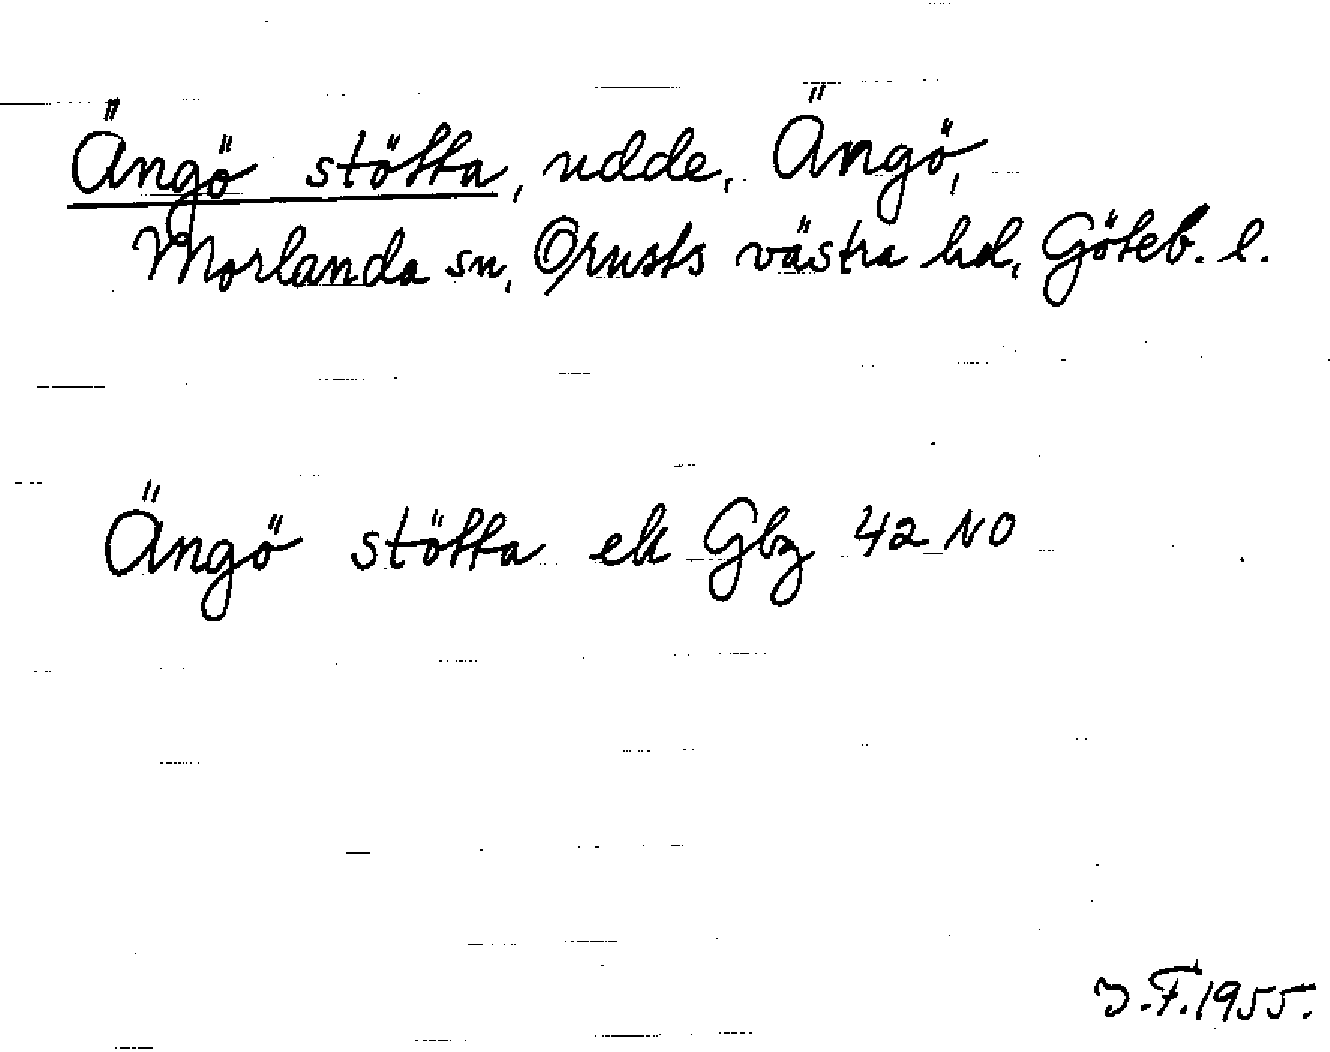 Ängö stötta, udde, Ängö,
Morlanda sn, Orusts västra hd, Göteb. l.
Ängö stötta ek Gbg 42 NO
J.F.1955.